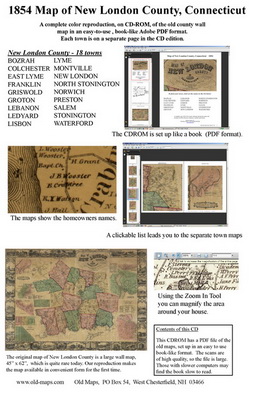 1854 Map of New London County, Connecticut
A complete color reproduction, on CD-ROM, of the old county wall
map in an easy-to-use , book-like Adobe PDF format.
Each town is on a separate page in the CD edition.
New London County - 18 towns
BOZRAH LYME
COLCHESTER MONTVILLE
EAST LYME NEW LONDON
FRANKLIN NORTH STONINGTON
GRISWOLD NORWICH
GROTON PRESTON
LEBANON SALEM
LEDYARD STONINGTON
LISBON WATERFORD
The CDROM is set up like a book (PDF format).
J. Wooster
J. Wooster,
H. Grant
The maps show the homeowners names.
A clickable list leads you to the separate town maps
Using the Zoom In Tool
you can magnify the area
around your house.
Contents of this CD
This CDROM has a PDF file of the
old maps, set up in an easy to use
book-like format. The scans are
of high quality, so the file is large.
Those with slower computers may
find the book slow to read.
The original map of New London County is a large wall map,
45" x 62", which is quite rare today. Our reproduction makes
the map available in convenient form for the first time.
www.old-maps.com Old Maps, PO Box 54, West Chesterfield, NH 03466